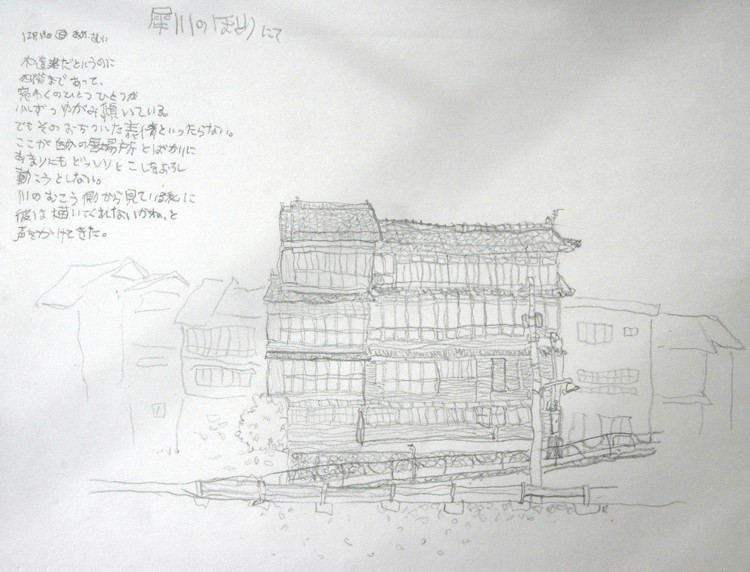 犀川のほとりにて
12月 あめ、さむい
木造建だというのに
四階まであって、
窓わくのひとつひとつが
少しずつゆがみ傾いている。
でもそのおちついた表情といったらない。
ここが自分の居場所とばかりに
あまりにもどっしりとこしをおろし
動こうとしない。
川のむこう側から見ている私に
彼は描いてくれないかね、と
声をかけてきた。